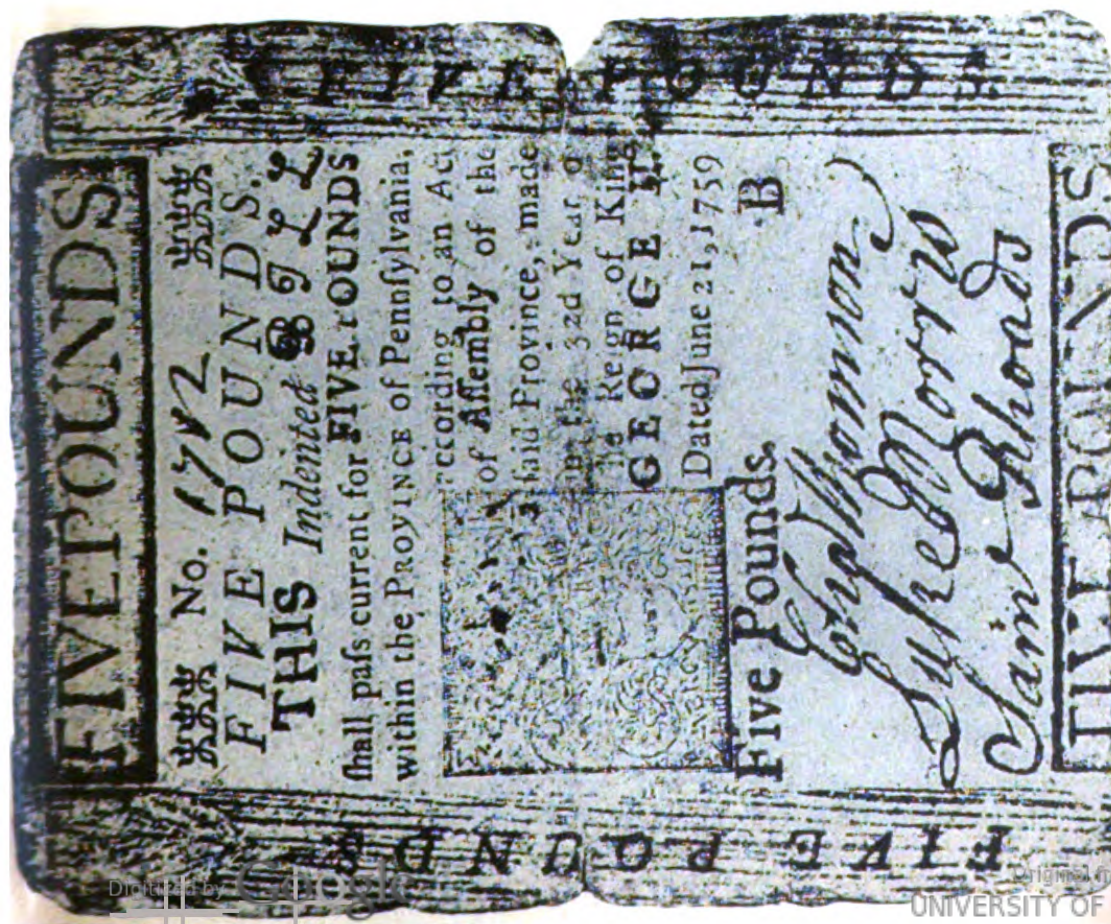 FIVE POUNDS
No. 1742
FIVE POUNDS.
THIS Indented B I L L
ſhall paſs current for FIVE POUNDS
within the PROVINCE of Pennſylvania,
according to an Act
of Aſſembly of the
ſaid Province, made
in the 32d Year of
the Reign of King
GEORGE II.
Dated June 21, 1759
Five Pounds. B
Luke Morris
Sam Rhoads
FIVE POUNDS
FIVE POUNDS
FIVE POUNDS
MERCY JUSTICE
Digitized by Google
Original
UNIVERSITY OF